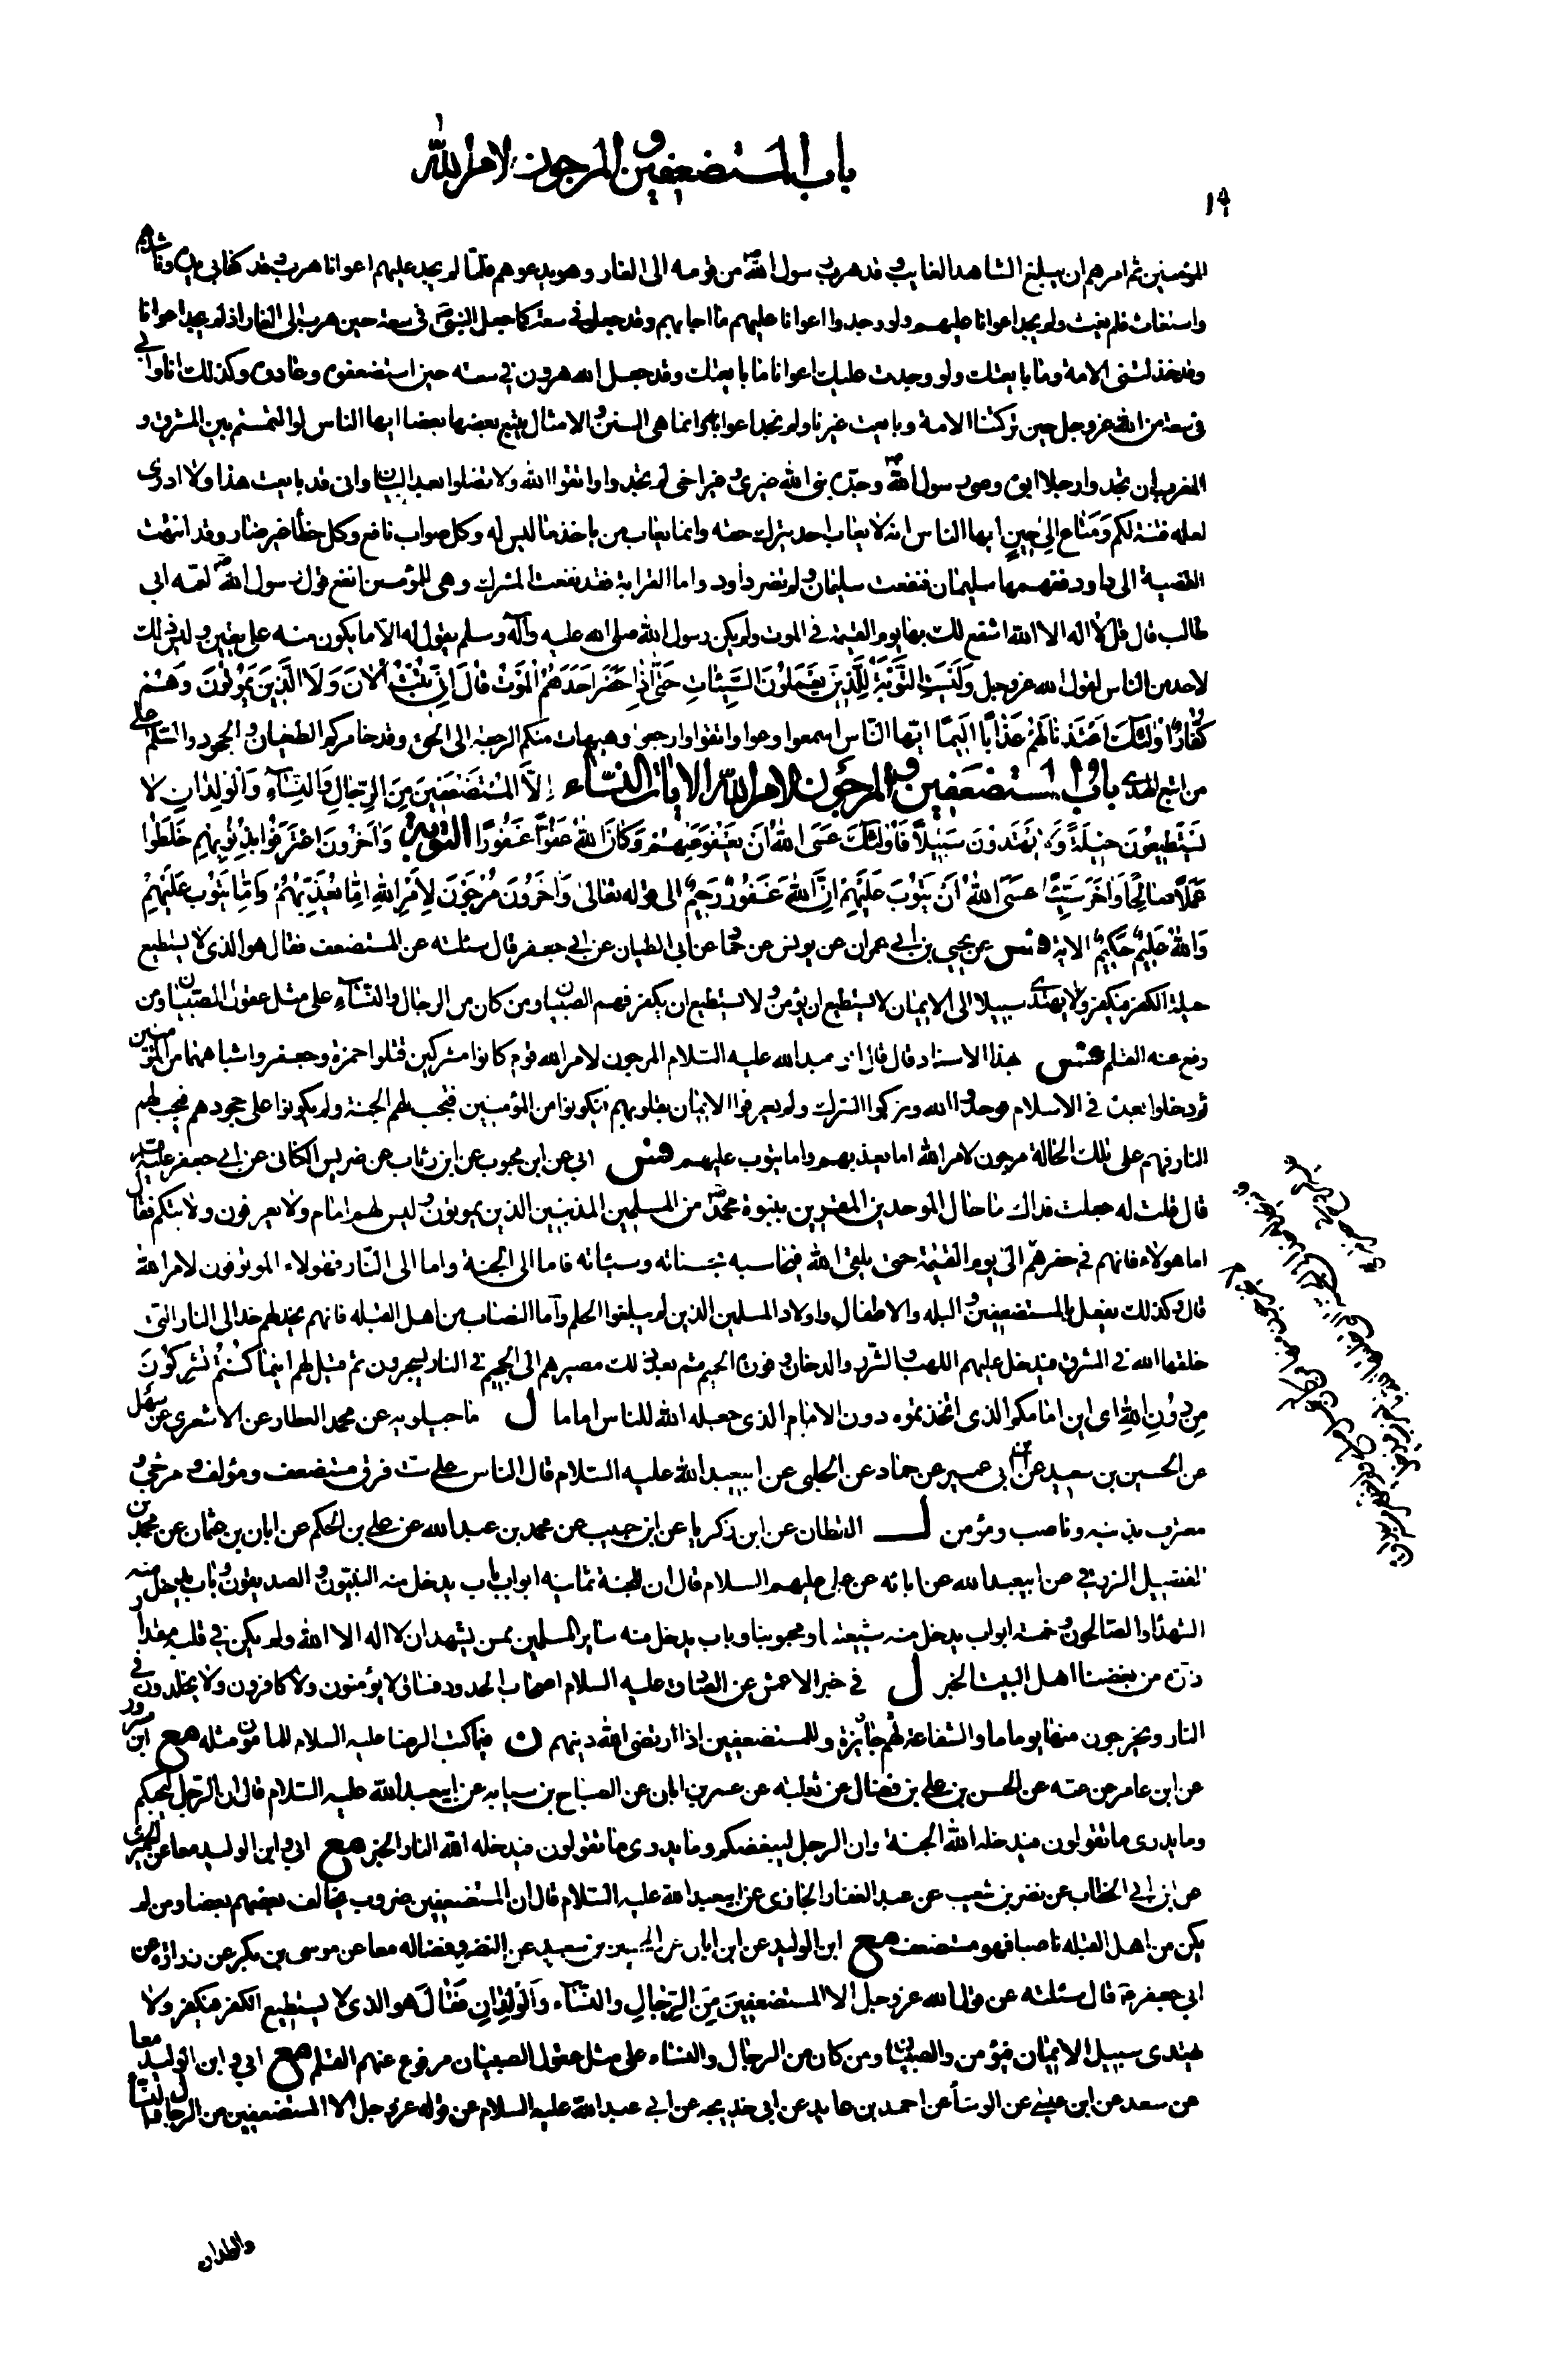 باب المستضعفين و المرجون لامر الله
١٩
المؤمنين ثم امرهم ان يبلغ الشاهد الغايب و قد هرب رسول الله ص من قومه الى الغار و هو يدعوهم فلما لم يجد عليهم اعوانا هرب و قد كف ابي يده و ناشدهم
و استغاث فلم يغث و لم يجد اعوانا عليهم و لو وجد اعوانا عليهم ما اجابهم و قد جعل في سعة كما جعل النبي ص في سعة حين هرب الى الغار اذ لم يجد اعوانا
و قد خذلتني الامة و بايعتك و لو وجدت عليك اعوانا ما بايعتك و قد جعل الله هرون في سعة حين استضعفوه و عادوه و كذلك انا و ابي
في سعة من الله عز و جل حين تركتنا الامة و بايعت غيرنا و لم نجد اعوانا و انما هي السنن و الامثال يتبع بعضها بعضا ايها الناس لو التمستم بين المشرق و
المغرب ان تجدوا رجلا ابوه وصي رسول الله ص و جده نبي الله غيري و غير اخي لم تجدوا و اتقوا الله و لا تضلوا بعد البيان و اني قد بايعت هذا و لا ادري
لعله فتنة لكم وَ مَتاع الى حِينٍ ايها الناس انه لا يعاب احد بترك حقه و انما يعاب من ياخذ ما ليس له و كل صواب نافع و كل خطأ غير ضار و قد انتهت
القضية الى داود ففهمها سليمان فنفعت سليمان و لم تضر داود و اما القرابة فقد نفعت المشرك و هي للمؤمن انفع قول رسول الله ص لعمه ابي
طالب قال قل لا اله الا الله اشفع لك بها يوم القيمة في الموت و لم يكن رسول الله صلى الله عليه و آله و سلم يقول له الا ما يكون منه على يقين و ليس ذلك
لاحد من الناس لقول الله عز و جل وَلَيْسَتِ التَّوْبَةُ لِلَّذِينَ يَعْمَلُونَ السَّيِّئاتِ حَتّى اِذا حَضَرَ اَحَدَهُمُ الْمَوْتُ قالَ اِنّي تُبْتُ الْانَ وَ لَا الَّذينَ يَمُوتُونَ وَ هُمْ
كُفّارٌ اُولئِكَ اَعْتَدْنا لَهُمْ عَذاباً اَليماً ايها الناس اسمعوا و عوا و اتقوا و ارجعوا و هيهات منكم الرجعة الى الحق و قد خامركم الطغيان و الجحود و السلم على
من اتبع الهدى باب المستضعفين و المرجون لامر الله الايات النساء اِلَّا الْمُسْتَضْعَفينَ مِنَ الرِّجالِ وَالنِّساءِ وَالْوِلْدانِ لا
يَسْتَطيعُونَ حيلَةً وَلا يَهْتَدُونَ سَبيلاً فَاُولئِكَ عَسَى اللهُ اَنْ يَعْفُوَ عَنْهُمْ وَكانَ اللهُ عَفُوّاً غَفُوراً التوبة وَاخَرُونَ اعْتَرَفُوا بِذُنُوبِهِمْ خَلَطُوا
عَمَلاً صالِحاً وَاخَرَ سَيِّئاً عَسَى اللهُ اَنْ يَتُوبَ عَلَيْهِمْ اِنَّ اللهَ غَفُورٌ رَحيمٌ الى قوله تعالى وَاخَرُونَ مُرْجَوْنَ لِاَمْرِ اللهِ اِمّا يُعَذِّبُهُمْ وَاِمّا يَتُوبُ عَلَيْهِمْ
وَاللهُ عَليمٌ حَكيمٌ الاية فس عن يحيى بن ابي عمران عن يونس عن حماد عن ابي الطيار عن ابي جعفر قال سئلته عن المستضعف فقال هو الذي لا يستطيع
حيلة الكفر فيكفر و لا يهتدي سبيلا الى الايمان لا يستطيع ان يؤمن و لا يستطيع ان يكفر فهم الصبيان و من كان من الرجال و النساء على مثل عقول الصبيان و من
رفع عنه القلم فس بهذا الاسناد قال قال ابو عبد الله عليه السلام المرجون لامر الله قوم كانوا مشركين قتلوا حمزة و جعفر و اشباههما من المؤمنين
ثم دخلوا بعد في الاسلام فوحدوا الله و تركوا الشرك و لم يعرفوا الايمان بقلوبهم فيكونوا من المؤمنين فتجب لهم الجنة و لم يكونوا على جحودهم فيجب لهم
النار فهم على تلك الحالة مرجون لامر الله اما يعذبهم و اما يتوب عليهم فس ابي عن ابن محبوب عن ابن رئاب عن ضريس الكناني عن ابي جعفر عليه السلام
قال قلت له جعلت فداك ما حال الموحدين المقرين بنبوة محمد ص من المسلمين المذنبين الذين يموتون و ليس لهم امام و لا يعرفون ولايتكم فقال
اما هولاء فانهم في حفرهم الى يوم القيمة حتى يلقى الله فيحاسبه بحسناته و سيئاته فاما الى الجنة و اما الى النار فهولاء الموقوفون لامر الله
قال و كذلك يفعل بالمستضعفين و البله و الاطفال و اولاد المسلمين الذين لم يبلغوا الحلم و اما النصاب من اهل القبله فانهم يخد لهم خدا الى النار التي
خلقها الله في المشرق فيدخل عليهم اللهب و الشرر و الدخان و فورة الحميم ثم بعد ذلك مصيرهم الى الجحيم في النار يسجرون ثم قيل لهم اينما كُنْتُمْ تُشْرِكُونَ
مِنْ دُونِ اللهِ اى اين امامكم الذي اتخذتموه دون الامام الذي جعله الله للناس اماما ل ماجيلويه عن محمد العطار عن الاشعري عن سهل
عن الحسين بن سعيد عن ابن ابي عمير عن حماد عن الحلبي عن ابيعبد الله عليه السلام قال الناس على ست فرق مستضعف و مؤلف و مرجى و
معترف بذنبه و ناصب و مؤمن ل القطان عن ابن زكريا عن ابن حبيب عن محمد بن عبد الله عن علي بن الحكم عن ابان بن عثمان عن محمد بن
الفضيل الزرقي عن ابيعبد الله عن ابائه عن علي عليهم السلام قال ان للجنة ثمانية ابواب باب يدخل منه النبيون و الصديقون و باب يدخل منه
الشهداء و الصالحون و خمسة ابواب يدخل منه شيعتنا و محبونا و باب يدخل منه ساير المسلمين ممن يشهد ان لا اله الا الله و لم يكن في قلبه مقدار
ذرة من بغضنا اهل البيت الخبر ل في خبر الاعمش عن الصادق عليه السلام اصحاب الحدود فساق لا يؤمنون و لا كافرون و لا يخلدون في
النار و يخرجون منها يوما ما و الشفاعة لهم جائزة و للمستضعفين اذا ارتضى الله دينهم ن فيما كتب الرضا عليه السلام للمامون مثله مع ابن مسرور
عن ابن عامر عن عمه عن الحسن بن علي بن فضال عن ثعلبه عن عمر بن ابان عن الصباح بن سيابه عن ابيعبد الله عليه السلام قال ان الرجل ليحبكم
و ما يدرى ما تقولون فيدخله الله الجنة و ان الرجل ليبغضكم و ما يدرى ما تقولون فيدخله الله النار الخبر مع ابي و ابن الوليد معا عن الحميري
عن ابن ابي الخطاب عن نضر بن شعيب عن عبد الغفار الجازي عن ابيعبد الله عليه السلام قال ان المستضعفين ضروب يخالف بعضهم بعضا و من لم
يكن من اهل القبله ناصبا فهو مستضعف مع ابن الوليد عن ابن ابان عن الحسين بن سعيد عن النضر و فضاله معا عن موسى بن بكر عن زرارة عن
ابي جعفر ع قال سئلته عن قول الله عز و جل الا المستضعفينَ مِنَ الرِّجالِ و النساء وَالْوِلْدانِ فَقالَ هو الذي لا يستطيع الكفر فيكفر و لا
يهتدى سبيل الايمان فيؤمن و الصبيان و من كان من الرجال و النساء على مثل عقول الصبيان مرفوع عنهم القلم مع ابي و ابن الوليد معا
عن سعد عن ابن عيسى عن الوشا عن احمد بن عايد عن ابي خديجه عن ابي عبد الله عليه السلام عن قوله عز و جل الا المستضعفين من الرجال و النساء
والولدان